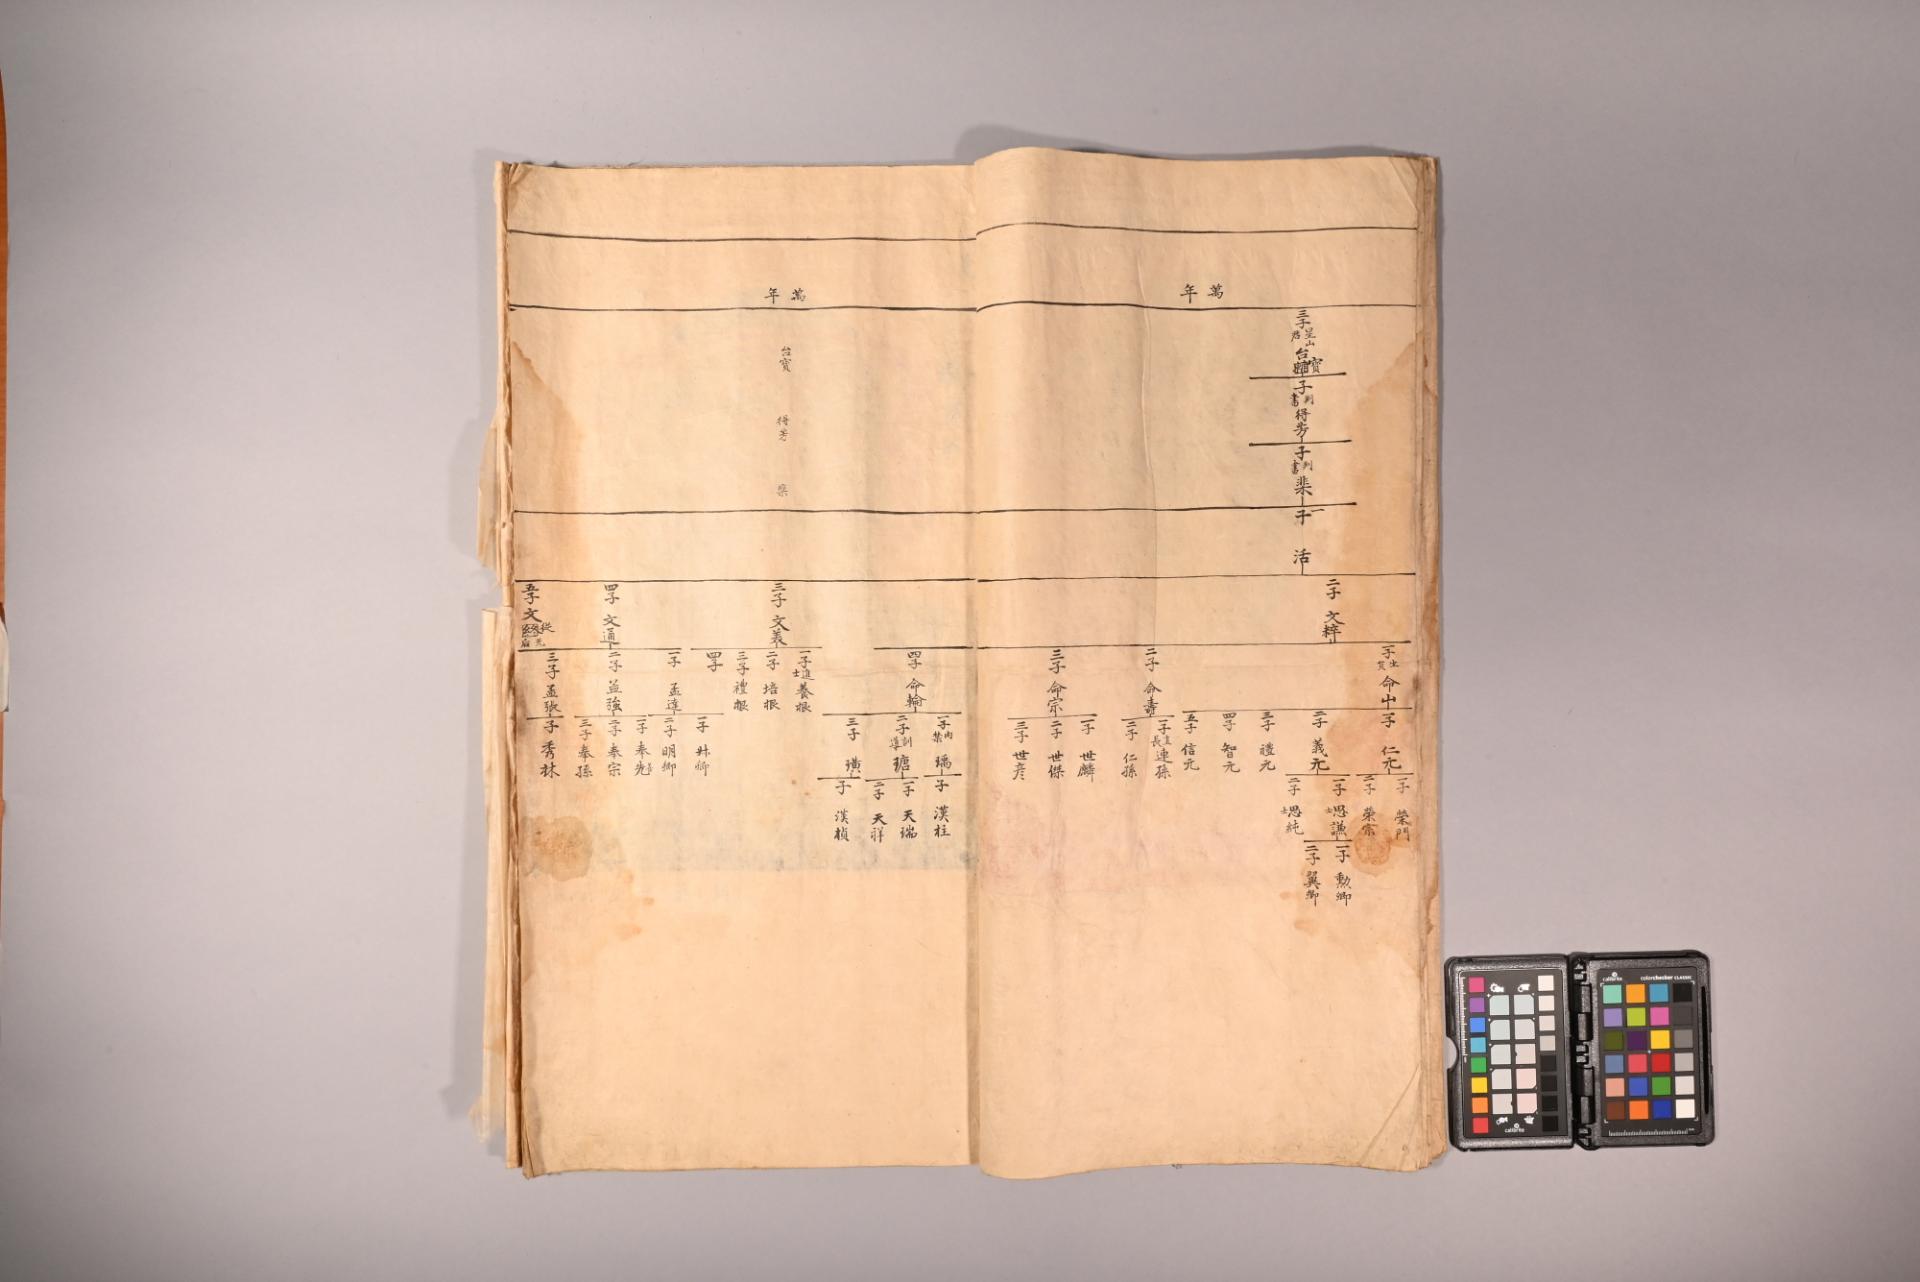 萬年
三子 星山君 台輔 寶
子 判書 得芳
子 判書 棐
一子 活
二子 文粹
一子 生貟 命山
二子 命壽
三子 命宗
一子 仁元
二子 義元
三子 禮元
四子 智元
五子 信元
一子 直長 連孫
二子 仁孫
一子 世麟
二子 世傑
三子 世彦
一子 榮門
二子 榮宗
一子 思謙
二子 思純
一子 勳卿
二子 翼卿
萬年
台寶
得芳
棐
四子 命輪
三子 文義
四子 文通
五子 文
一子 進士 養根
二子 培根
三子 禮根
四子
一子 孟達
二子 孟強
三子 孟張
一子 瑀
二子 訓導 瑭
三子 璜
一子 弁卿
二子 明卿
一子 奉先
二子 奉宗
三子 奉孫
子 秀林
子 漢柱
一子 天瑞
二子 天祥
子 漢楨
calibrite
colorchecker CLASSIC
calibrite